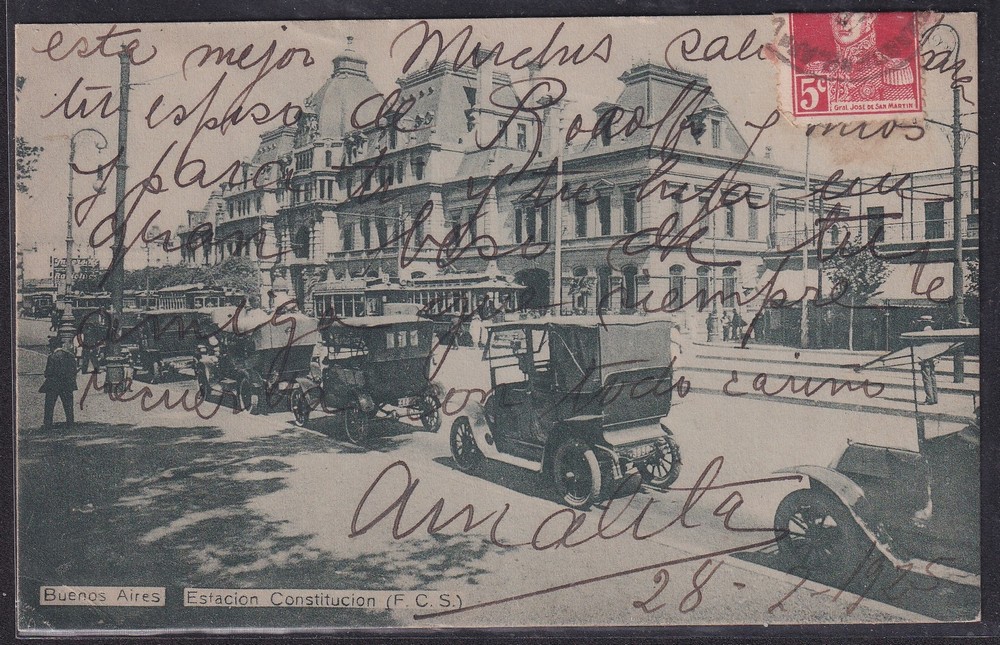 esta mejor Muchos
tu esposo de Rodolfo y mios
y para ti y tu hija un
gran beso de tu
amiga que siempre te
recuerda con todo cariño
Amalita
28-2-1925
5c
Gral. José de San Martin
Buenos Aires
Estacion Constitucion (F. C. S.)